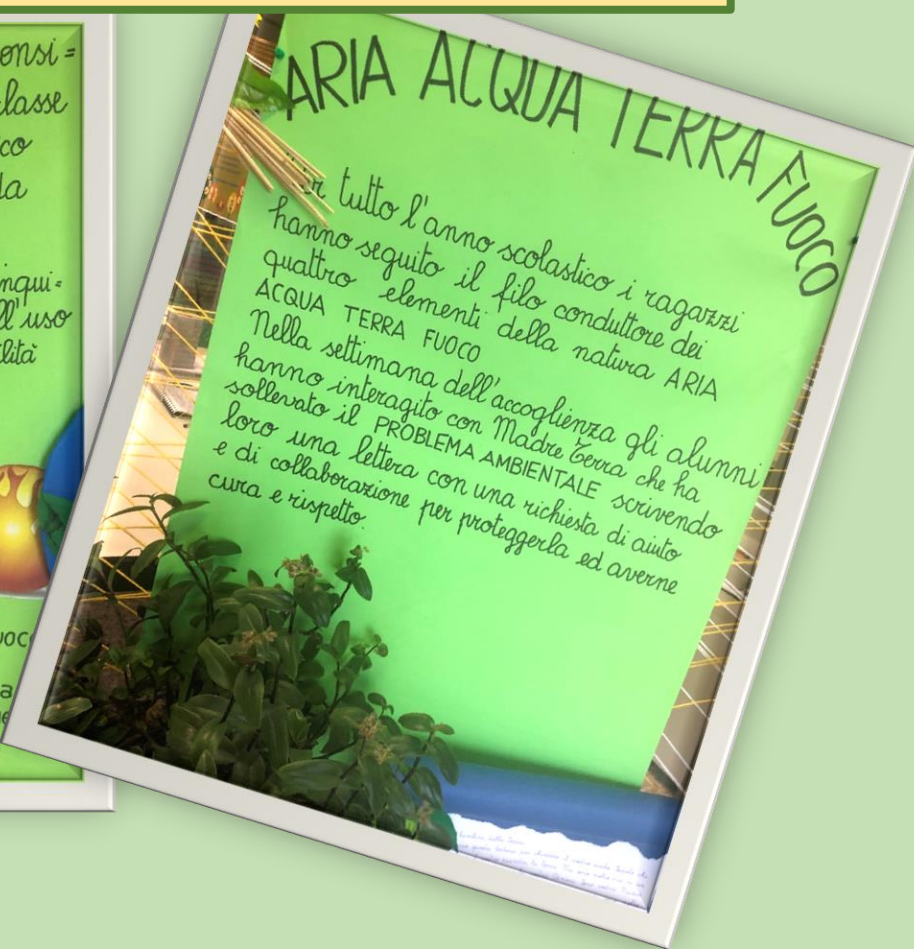 onsi=
classe
co
la
nqui=
ll'uso
lità
ARIA ACQUA TERRA FUOCO
tutto l'anno scolastico i ragazzi
hanno seguito il filo conduttore dei
quattro elementi della natura ARIA
ACQUA TERRA FUOCO
Nella settimana dell'accoglienza gli alunni
hanno interagito con Madre Terra che ha
sollevato il PROBLEMA AMBIENTALE scrivendo
loro una lettera con una richiesta di aiuto
e di collaborazione per proteggerla ed averne
cura e rispetto.